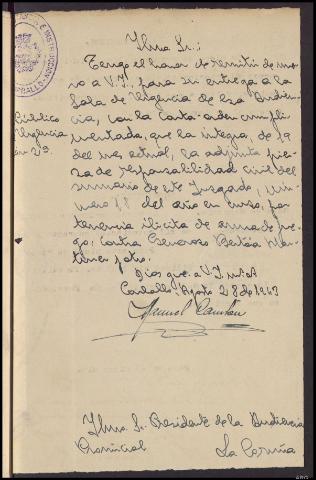 E INSTRUCCION
CARBALLO
Ilmo Sr.:
Tengo el honor de remitir de nue
vo a V.I., para su entrega a la
Sala de Vigencia de esa Audien-
cia, con la carta-orden cumpli-
mentada, que la integra, de 19
del mes actual, la adjunta pie-
za de responsabilidad civil del
sumario de este Juzgado, nú-
mero 11 del año en curso, por
tenencia ilícita de arma de fue-
go; contra Generoso
y otro.
Dios gue. a V.I. m. a.
Carballo, Agosto 28 de 1943
Manuel
Ilmo Sr. Presidente de la Audiencia
Provincial La Coruña